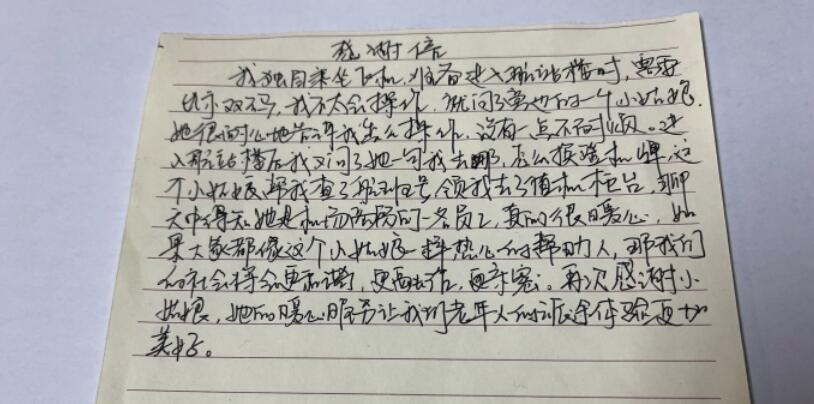 感谢信
我独自乘坐飞机，准备进入航站楼时，需要
出示双码，我不太会操作，就问了旁边的一个小姑娘，
她很耐心地告诉我怎么操作，没有一点不耐烦。进
入航站楼后我又问了她一句我去哪，怎么换登机牌，这
个小姑娘帮我查了航班号，领我去了值机柜台，聊
天中得知她是机场商贸的一名员工，真的很暖心，如
果大家都像这个小姑娘一样热心的帮助人，那我们
的社会将会更和谐，更团结，更亲密。再次感谢小
姑娘，她的暖心服务让我们老年人的旅途体验更加
美好。